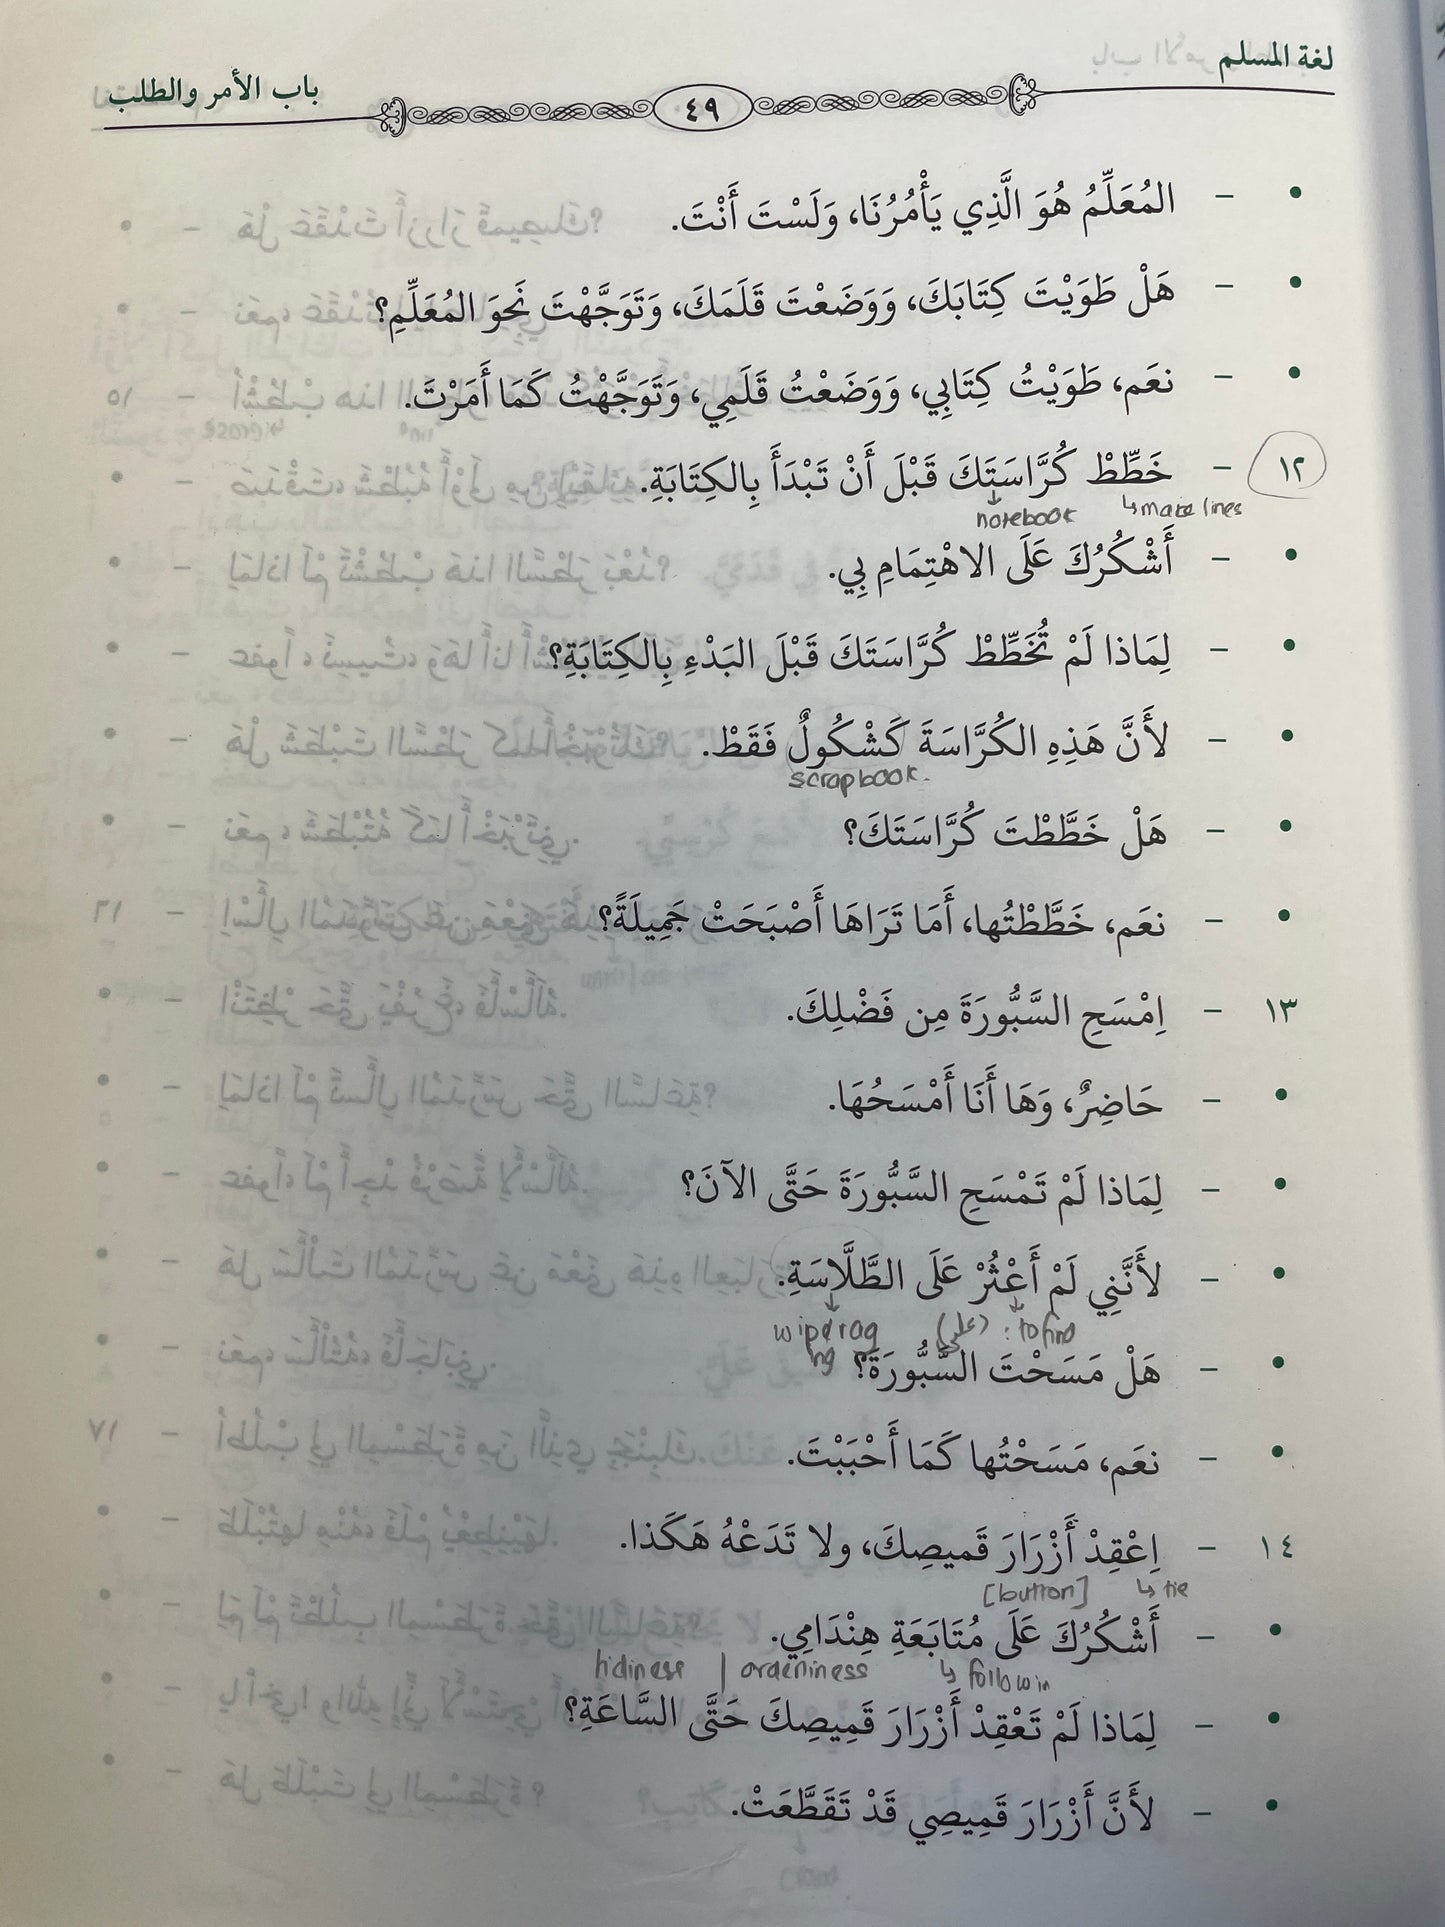 لغة المسلم
٤٩
باب الأمر والطلب
• - المُعَلِّمُ هُوَ الَّذِي يَأْمُرُنَا، وَلَسْتَ أَنْتَ.
• - هَلْ طَوَيْتَ كِتَابَكَ، وَوَضَعْتَ قَلَمَكَ، وَتَوَجَّهْتَ نَحوَ المُعَلِّمِ؟
• - نعَم، طَوَيْتُ كِتَابِي، وَوَضَعْتُ قَلَمِي، وَتَوَجَّهْتُ كَمَا أَمَرْتَ.
١٢ - خَطِّطْ كُرَّاسَتَكَ قَبْلَ أَنْ تَبْدَأَ بِالكِتَابَةِ.
notebook ↳ make lines
• - أَشْكُرُكَ عَلَى الاهْتِمَامِ بِي.
• - لِمَاذا لَمْ تُخَطِّطْ كُرَّاسَتَكَ قَبْلَ البَدْءِ بِالكِتَابَةِ؟
• - لأَنَّ هَذِهِ الكُرَّاسَةَ كَشْكُولٌ فَقَطْ.
scrapbook.
• - هَلْ خَطَّطْتَ كُرَّاسَتَكَ؟
• - نعَم، خَطَّطْتُها، أَمَا تَرَاهَا أَصْبَحَتْ جَمِيلَةً؟
١٣ - اِمْسَحِ السَّبُّورَةَ مِن فَضْلِكَ.
• - حَاضِرٌ، وَهَا أَنَا أَمْسَحُهَا.
• - لِمَاذا لَمْ تَمْسَحِ السَّبُّورَةَ حَتَّى الآنَ؟
• - لأَنَّنِي لَمْ أَعْثُرْ عَلَى الطَّلَّاسَةِ.
(على) : to find
• - هَلْ مَسَحْتَ السَّبُّورَةَ؟
• - نعَم، مَسَحْتُها كَمَا أَحْبَبْتَ.
١٤ - اِعْقِدْ أَزْرَارَ قَميصِكَ، ولا تَدَعْهُ هَكَذا.
[button] ↳ tie
• - أَشْكُرُكَ عَلَى مُتَابَعَةِ هِنْدَامِي.
tidiness | orderliness ↳ followin
• - لِمَاذا لَمْ تَعْقِدْ أَزْرَارَ قَمِيصِكَ حَتَّى السَّاعَةِ؟
• - لأَنَّ أَزْرَارَ قَمِيصِي قَدْ تَقَطَّعَتْ.